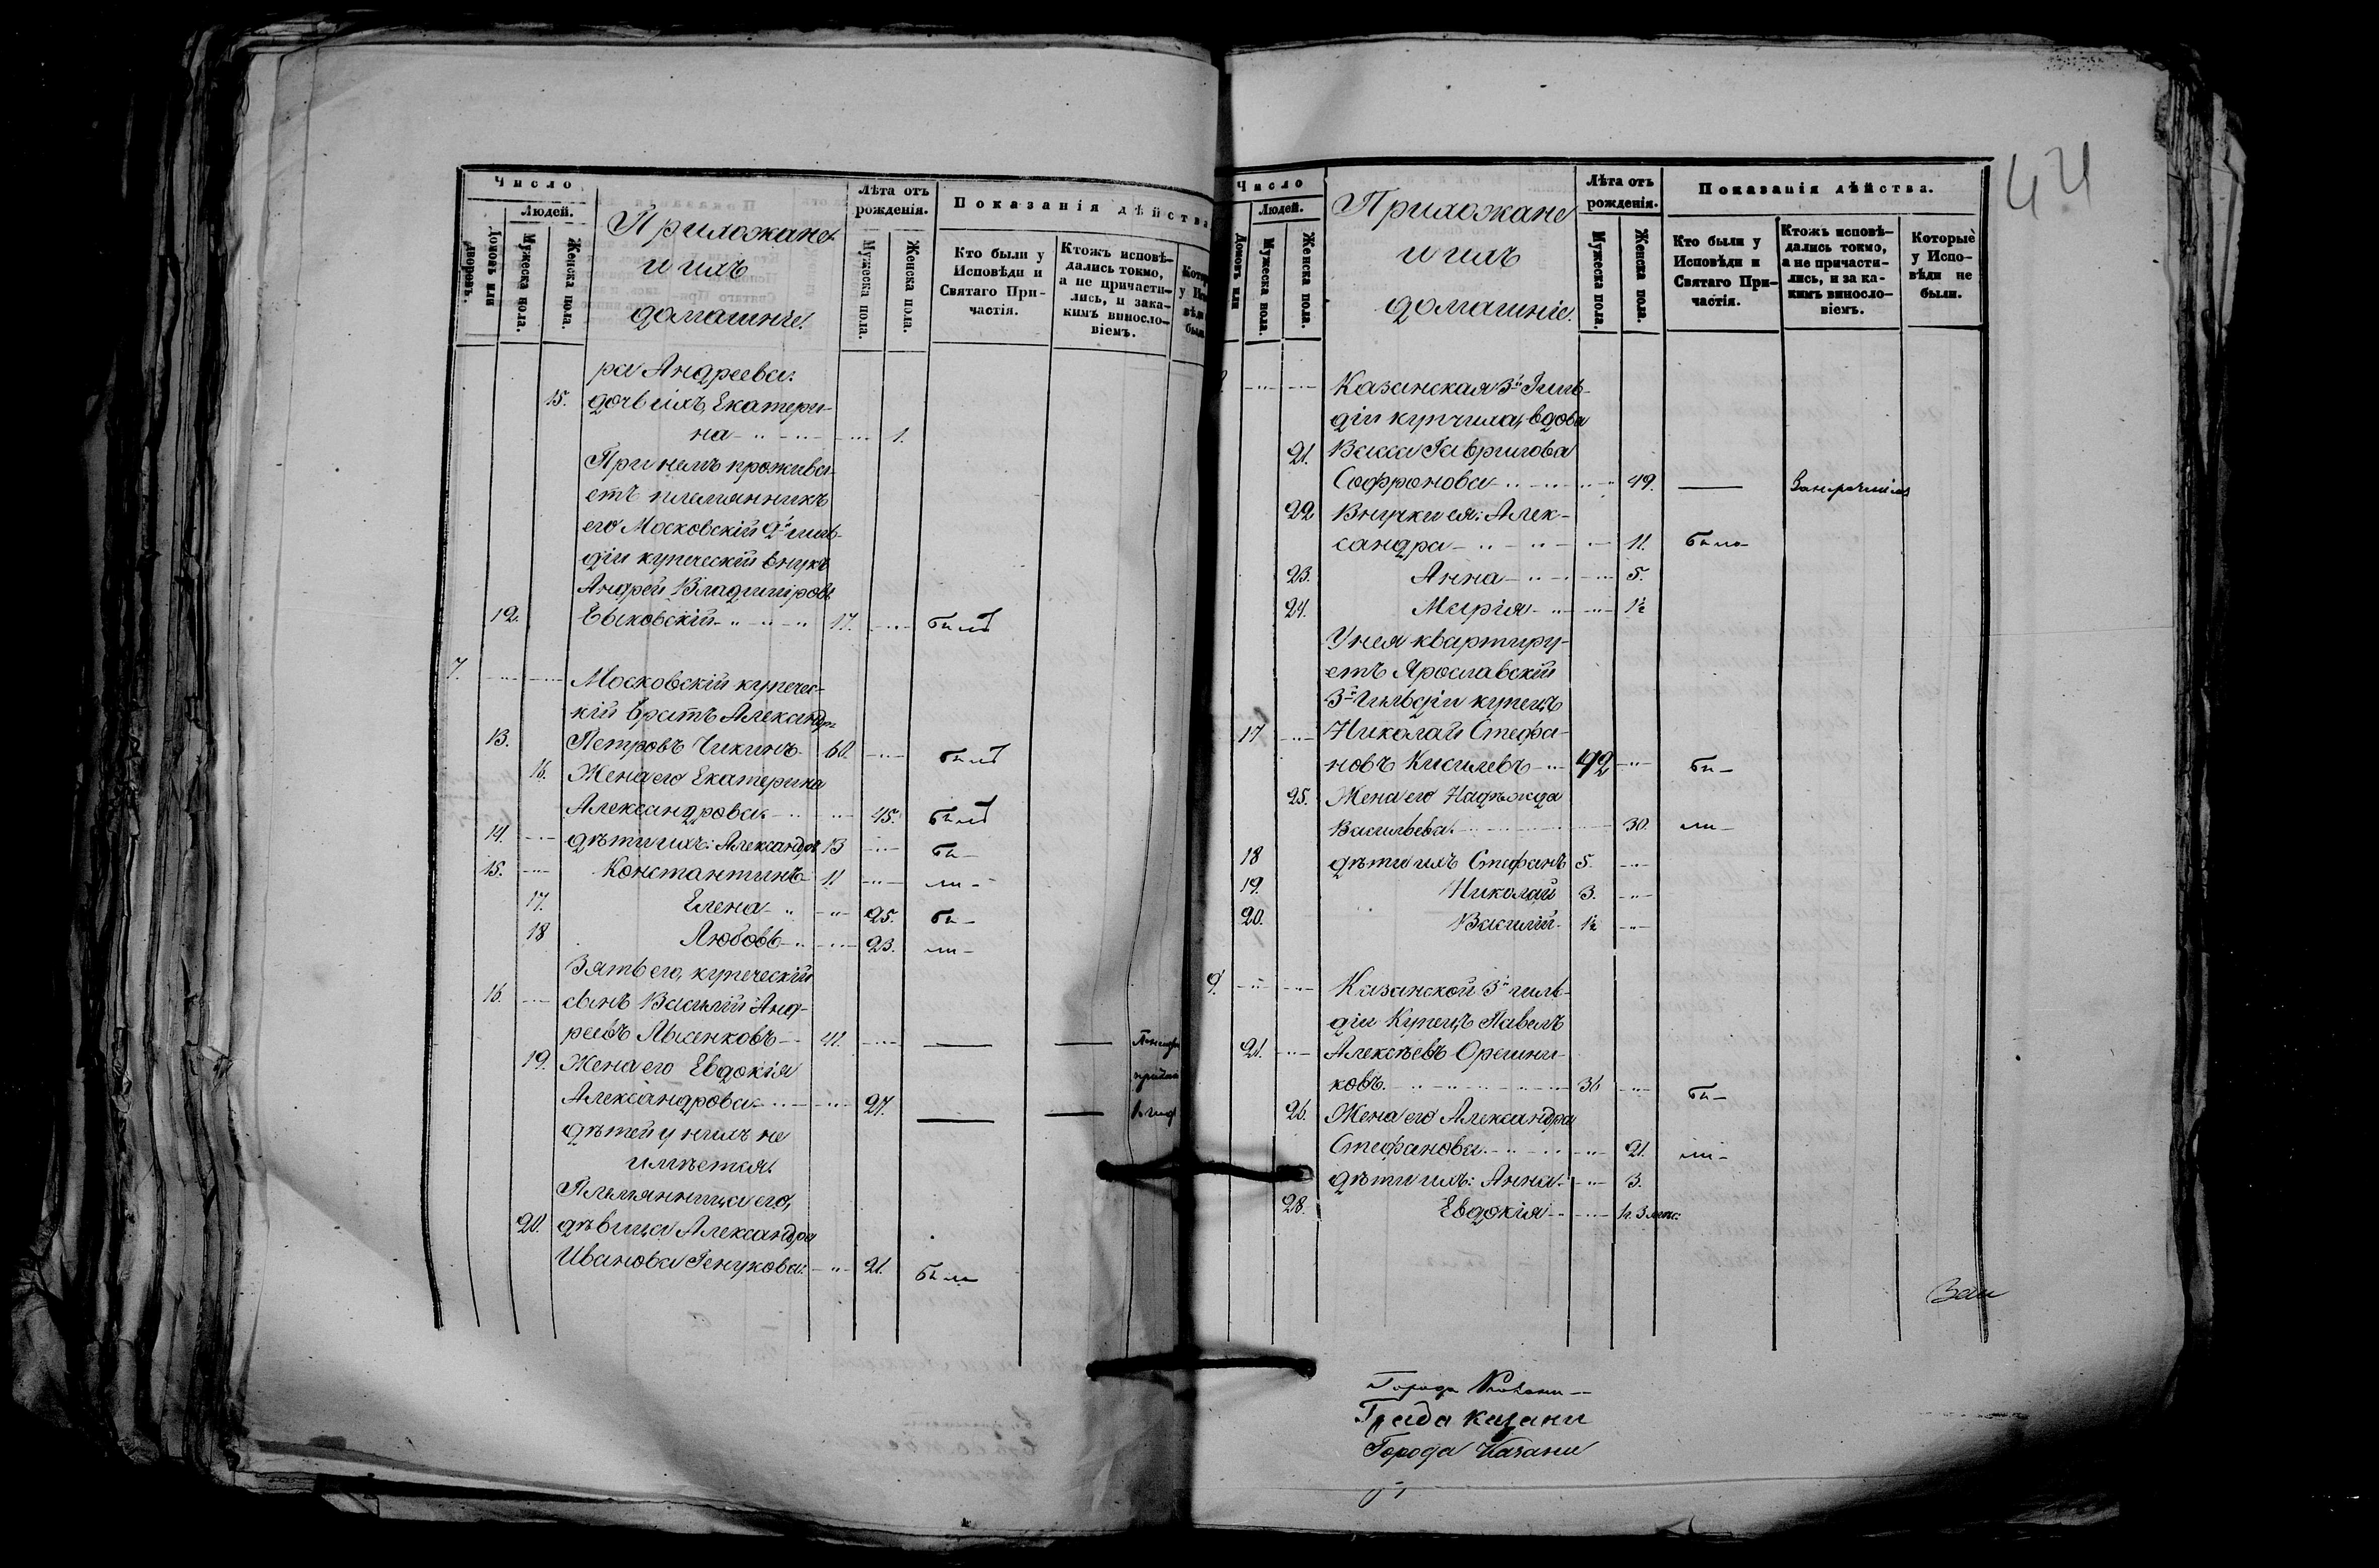 Число
Людей.
Домовъ или дворовъ.
Мужеска пола.
Женска пола.
Прихожане
и ихъ
домашніе.
Лѣта отъ рожденія.
Мужеска пола.
Женска пола.
Показанія дѣйства
Кто были у Исповѣди и Святаго Причастія.
Ктожъ исповѣ-
дались токмо,
а не причасти-
лись, и зака-
кимъ винosло-
віемъ.
ра Андреева.
15. дочь ихъ, Екатери-
на - 1.
При немъ прожива-
етъ племянникъ
его Московскій 2й гиль-
діи купеческій внукъ
Андрей Владиміровъ
12. Быковскій - 17. былъ
7. Московскій купечес-
кій братъ Александръ
13. Петровъ Чикинъ - 60. былъ
16. Жена его Екатерина
Александрова - 45.
14. дѣти ихъ: Александръ 13 бы-
15. Константинъ 11 ли-
17. Елена - 25. бы-
18 Любовь - 23. ли-
Зять его, купеческій
16. сынъ Василій Анд-
реевъ - 41.
19. Жена его Евдокія
Александрова - 27.
дѣтей у нихъ не
имѣется.
Племянница его,
20. дѣвица Александра
Иванова - 21. была
44
Число
Людей.
Домовъ или
Мужеска пола.
Женска пола.
Прихожане
и ихъ
домашніе.
Лѣта отъ рожденія.
Мужеска пола.
Женска пола.
Показанія дѣйства.
Кто были у
Исповѣди и
Святаго При-
частія.
Ктожъ исповѣ-
дались токмо,
а не причасти-
лись, и за ка-
кимъ винoсло-
віемъ.
Которые
у Испо-
вѣди не
были.
Казанская 3й Гиль-
діи купчиха, вдова
21. Васса Гаврилова
Софронова - 49.
22 Внучки ея: Алек-
сандра - 11. была
23. Анна - 5.
24. Марія - 1½
У нея квартиру-
етъ Ярославскій
3й Гильдіи купецъ
17 Николай Стефа-
новъ Киселевъ - 42 бы-
25. Жена его Надежда
Васильева. 30. ли-
18 дѣти ихъ Стефанъ 5.
19. Николай 3.
20. Василій. 1½
9. Казанской 3й гиль-
діи Купецъ Павелъ
21. Алексѣевъ Орешни-
ковъ. 36 бы-
26. Жена его Александра
Стефанова. 21. ли-
дѣти ихъ: Анна. 3.
28. Евдокія - 1г. 3 мѣс:
Града Казани
Города Казани